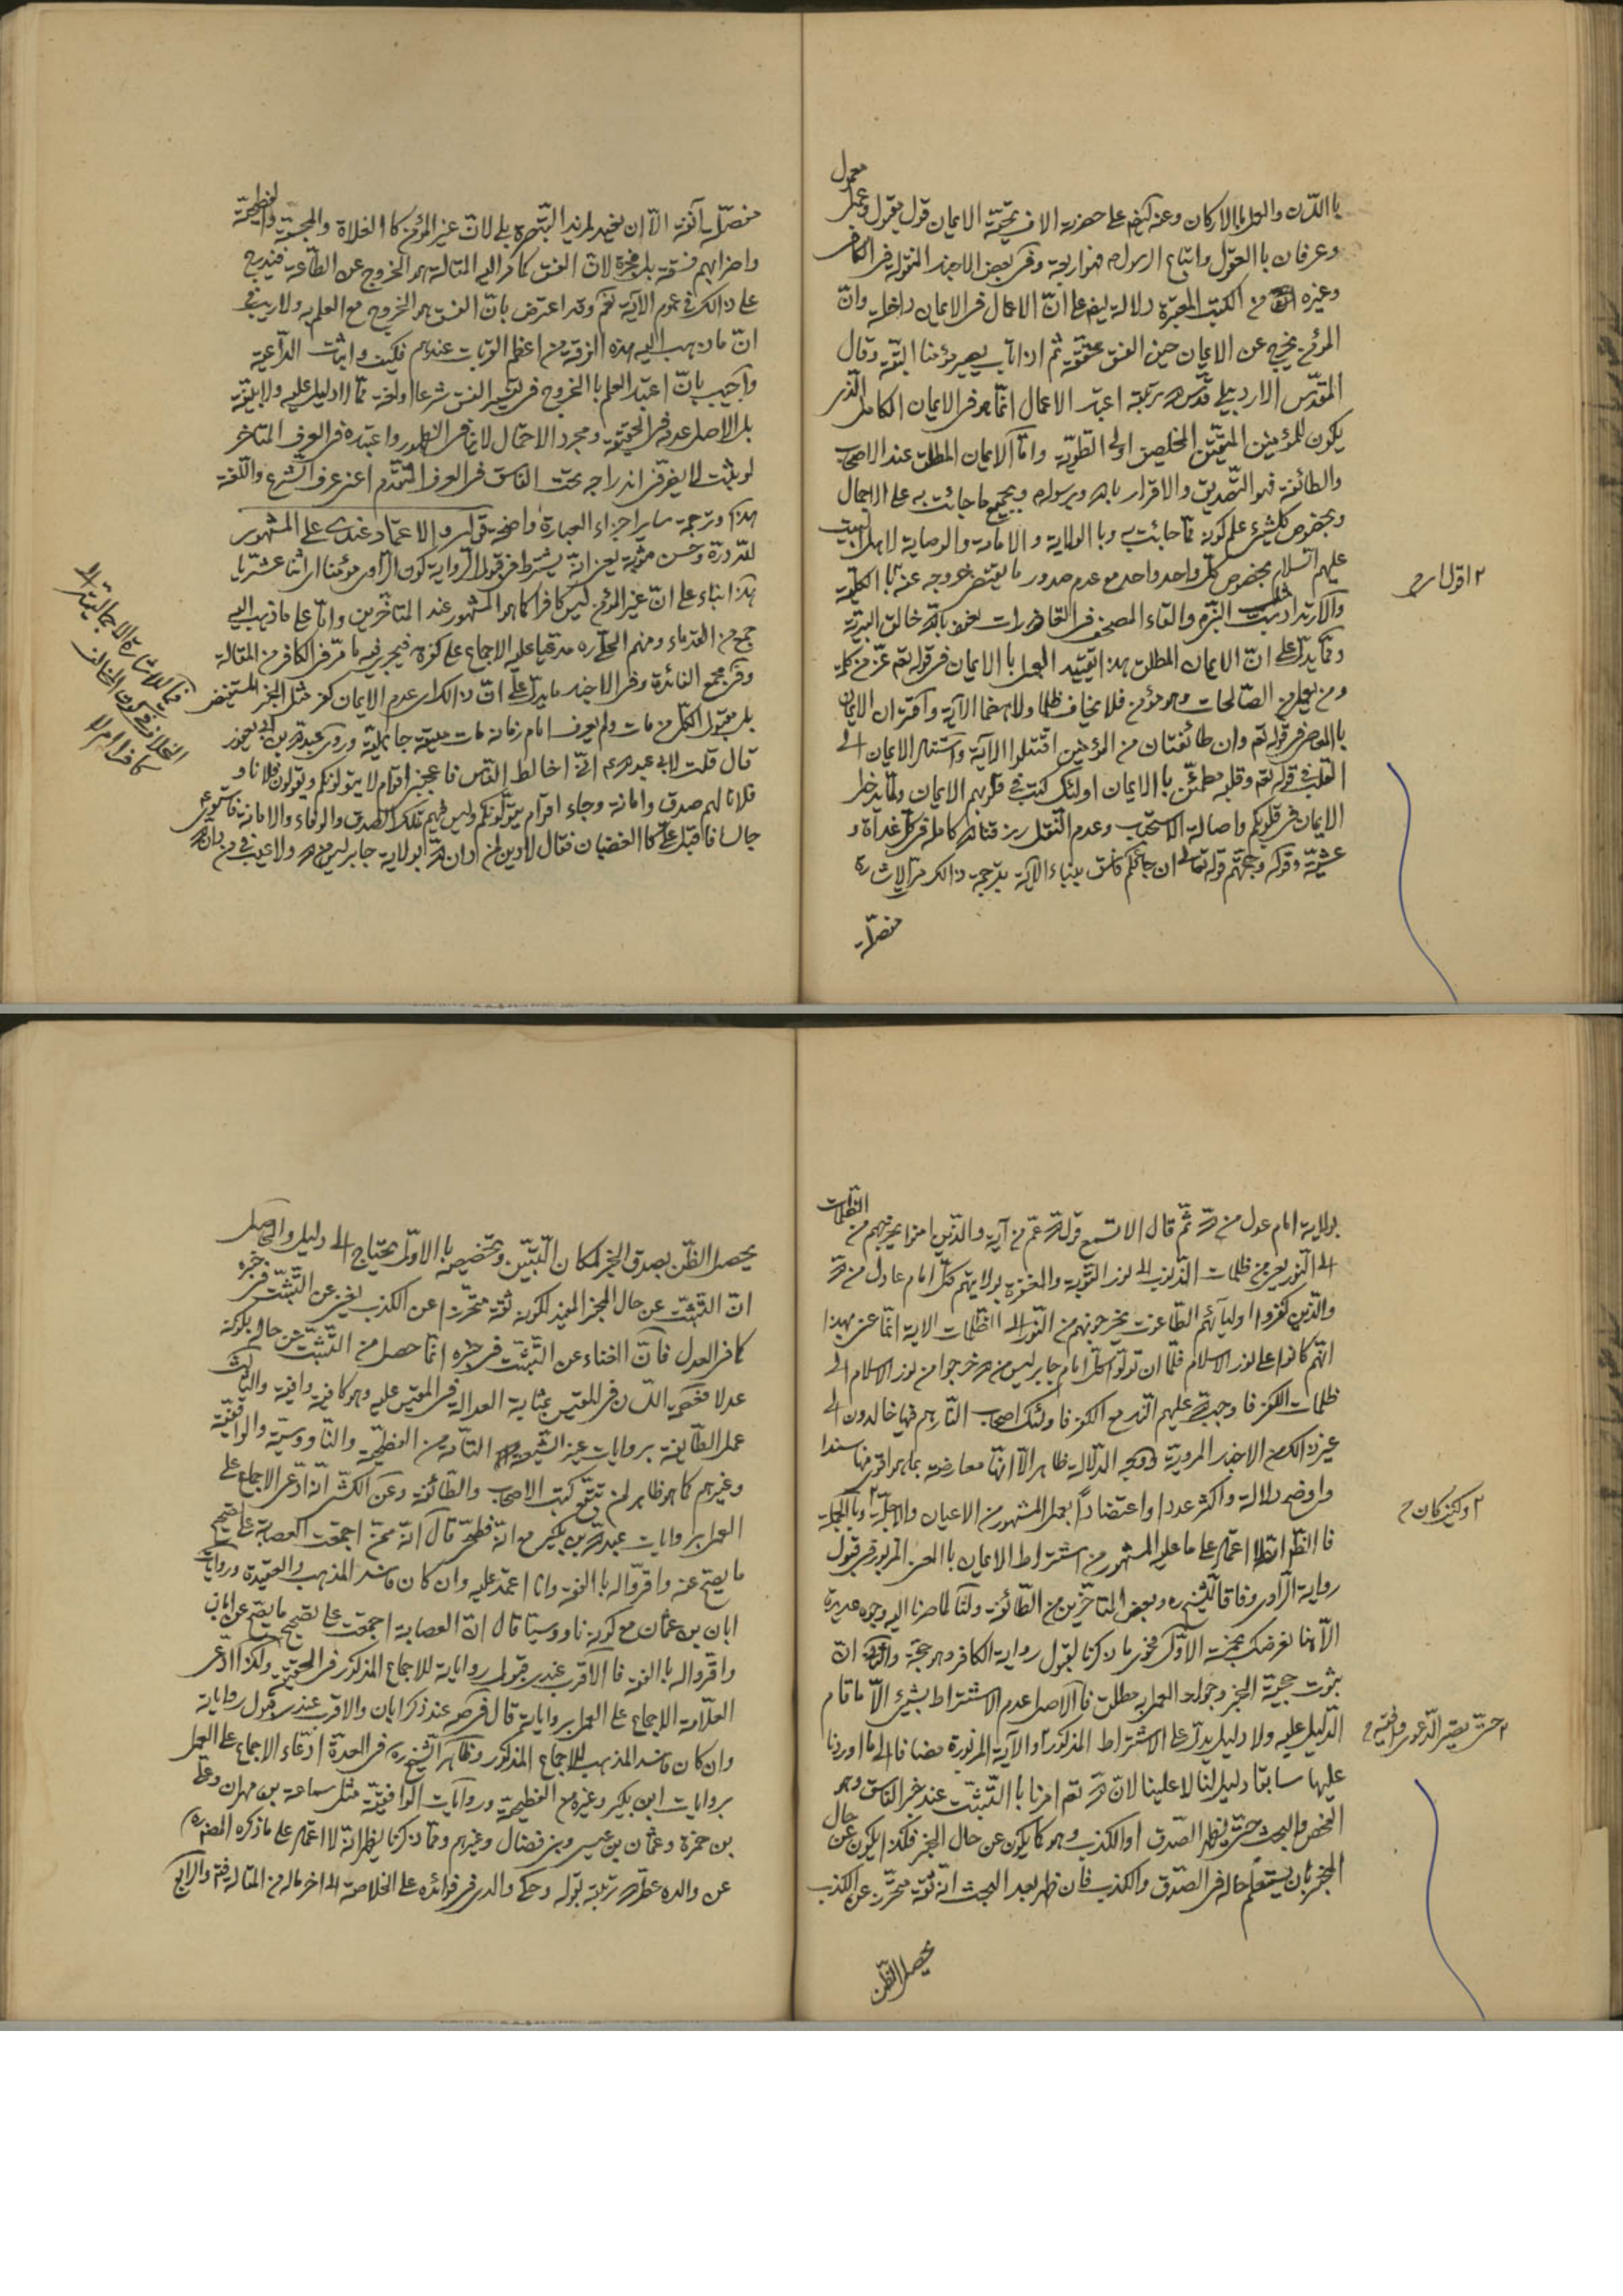 باللسان والعمل بالاركان وعنه ايضا على حضرته الاف تحيّة الايمان قول مقول وعمل معمول
وعرفان باالعقول واتباع الرسول فهو اربعة وفي بعض الاخبار المنقولة في الكافي
وغيره من الكتب المعتبرة دلالة ايضا على انّ الاعمال في الايمان داخلة وانّ
المؤمن يخرج عن الايمان حين الفسق حقيقة ثم اذا تاب يصير مؤمنا البتّة وقال
المقدّس الاردبيلي قدّس الله تربته اعتبار الاعمال انّما هو في الايمان الكامل الّذي
يكون للمؤمنين المتّقين المخلصين اولى الطويّة وامّا الايمان المطلق عند الاصحاب
والطائفة فهو التّصديق والاقرار بالله وبرسوله وبجميع ما جائت به على الاجمال
وبخصوص كلّ شيء علم كونه ممّا جائت به وبا الولاية والامامة والوصاية لاهل البيت
عليهم السّلام بخصوص كلّ واحد واحد مع عدم صدور ما يقتضى خروجه عنه با الكليّة
والارتداد كسبّ النبي والقاء المصحف في القاذورات نعوذ بالله خالق البريّة
وممّا يدلّ على انّ الايمان المطلق هذا تقييد العمل باالايمان في قوله تعم عزّ من كلمة
ومن يعمل من الصّالحات وهو مؤمن فلا يخاف ظلما ولا هضما الآية واقتران الايمان
باالمعاصي في قوله تعم وان طائفتان من المؤمنين اقتتلوا الآية واستناد الايمان الى
القلب في قوله تعم وقلبه مطمئنّ باالايمان اولئك كتب في قلوبهم الايمان ولمّا يدخل
الايمان في قلوبكم واصالة الاستصحاب وعدم النّقل
عشيّة وقوله وجهتهم قوله تعالى ان جائكم فاسق بنباء الآية بترجمة ذالك مرّ الاشارة
مفصّلة
۲ اقول م
مفصّلة آنفة الّا ان نفيد لمزيد التّبصرة بل لانّ غير المؤمن كالغلاة والمجسّمة والفطحيّة
واضرابهم فسقة بل فجرة لانّ الفسق كما في المقالة هو الخروج عن الطّاعة فيندرج
على ذالك في عموم الآية نعم وقد اعترض بانّ الفسق هو الخروج مع العلم به ولا ريب في
انّ ما ذهب اليه هذه الفرقة من اعظم القربات عندهم فكيف واثبات الدّاعية
واجيب بانّ اعتبار العلم باالخروج في تفسير الفسق شرعا اولغة ممّا لا دليل عليه ولا بيّنة
بل الاصل عدمه في الحقيقة ومجرد الاحتمال لا ينافي الظهور واعتباره في العرف المتاخر
لو يثبت لا يضرّ في اندراجه تحت الفاسق في العرف المتقدّم اعني عرف الشّرع واللّغة
هذا وترجمة ساير اجزاء العبارة واضحة قوله والاعتماد عندى على المشهور
لله درّه وحسن مثوبته يعني انّه يشترط في قبول الرّواية كون الرّاوى مؤمنا اثنا عشريّا
هذا بناء على انّ غير المؤمن ليس كافرا كما هو المشهور عند المتاخّرين وامّا على ما ذهب اليه
جمع من القدماء ومنهم الحلّي ره مدّعيا عليه الاجماع على كفره فيجري فيه ما مرّ في الكافر من المقالة
وفي مجمع الفائدة وفي الاخبار ما يدلّ على انّ ذالك اى عدم الايمان كفر مثل الخبر المستفيض
بل مقبول الكلّ من مات ولم يعرف امام زمانه مات ميتة جاهليّة وروى عبد الله بن ابي يعفور
قال قلت لابي عبد الله ع انّي اخالط النّاس فاعجبني اقوام لا يتولّونكم ويتولّون فلانا و
فلانا لهم صدق وامانة وجاء اقوام يتولّونكم وليس فيهم تلك الصّدق والوفاء والامانة فاستوى
جالسا فاقبل عليّ كا الغضبان فقال لا دين لمن دان الله بولاية جابر ليس من الله ولا عتب في من دان الله
بولاية امام عدل من الله ثمّ قال الا تسمع قول الله عمّ من آية والّذين امنوا يخرجهم من الظّلمات
الى النّور يعني من ظلمات الذّنوب الى نور التّوبة والمغفرة بولايتهم كلّ امام عادل من الله
والّذين كفروا اوليآئهم الطّاغوت يخرجونهم من النّور الى الظّلمات الاية انّما عنى بهذا
انّهم كانوا على نور الاسلام فلمّا ان تولّوا كلّ امام جابر ليس من الله خرجوا من نور الاسلام الى
ظلمات الكفر فاوجب الله عليهم النّار مع الكفر فاولئك اصحاب النّار هم فيها خالدون الى
غير ذالك من الاخبار المروية ووجه الدّلالة ظاهر الّا انّها معارضة بما هو اقوى منها سندا
واوضح دلالة واكثر عددا واعتضاداً بعمل المشهور من الاعيان والاجلّة وباالجملة
فا الظّاهر الاعتماد على ما عليه المشهور من اشتراط الايمان باالمعنى المزبور في قبول
رواية الرّاوى وفاقا للشّيخ ره وبعض المتاخّرين من الطّائفة ولنا لما صرنا اليه وجوه عديدة
الّا هنا نعرضك بخمسة الاوّل فحوى ما ذكرنا لقبول رواية الكافر وهو حجّة والثّاني انّ
بثوت حجيّة الخبر وجواز العمل به مطلق فا الاصل عدم الاشتراط بشيئ الّا ما قام
الدّليل عليه ولا دليل يدلّ على الاشتراط المذكور والآية المزبورة مضافا الى ما اوردنا
عليها سابقا دليل لنا لا علينا لانّ الله تعم امرنا باالتّثبّت عند خبر الفاسق وهو
الفحص والبحث حتّى يظهر الصّدق او الكذب وهو كما يكون عن حال الخبر فكذا يكون عن حال
المخبر بان يستعلم حاله في الصّدق والكذب فان ظهر بعد البحث انّه ثقة متحرّز عن الكذب
يحصل الظّن
۲ ولكن كان م
۲ حتّى يصير الدّعوى
يحصل الظّن بصدق الخبر لمكان التّبيّن وتخصيصه باالاوّل يحتاج الى دليل والحاصل
انّ التّثبّت عن حال المخبر المفيد لكونه ثقة متحرّزا عن الكذب يغني عن التّثبّت في خبره
كما في العدل فانّ الغناء عن التّثبّت في خبره انّما حصل من التّثبّت عن حاله بكونه
عدلا
عمل الطّائفة بروايات غير الشّيعة التّامة من الفطحيّة والنّاووسيّة والواقفيّة
وغيرهم كما هو ظاهر لمن تتبّع كتب الاصحاب والطّائفة وعن الكشّي انّه ادّعى الاجماع على
العمل بروايات عبد الله بن بكير مع انّه فطحيّ قال انّه ممّن اجمعت العصابة على تصحيح
ما يصحّ عنه واقرّوا له باالفقه وانا اعتمد عليه وان كان فاسد المذهب والعقيدة وروايات
ابان بن عثمان مع كونه ناووسيّا قال انّ العصابة اجمعت على تصحيح ما يصحّ عن ابان
واقرّوا له باالفقه فا الاقرب عندي قبول رواياته للاجماع المذكور في الحقيقة وكذا ادّعى
العلّامة الاجماع على العمل برواياته قال في صه عند ذكر ابان والاقرب عندي قبول رواياته
وان كان فاسد المذهب للاجماع المذكور وظاهر الشّيخ ره في العدّة ادّعاء الاجماع على العمل
بروايات ابن بكير وغيره من الفطحيّة وروايات الواقفيّة مثل سماعة بن مهران وعليّ
بن حمزة وعثمان بن عيسى وبني فضّال وغيرهم وممّا ذكرنا يظهر انّه لا اعتماد على ما ذكره المصنّف ره
عن والده عطّر الله تربته بقوله وحكى والدي في فوائده على الخلاصة الى اخر ماله من المقالة